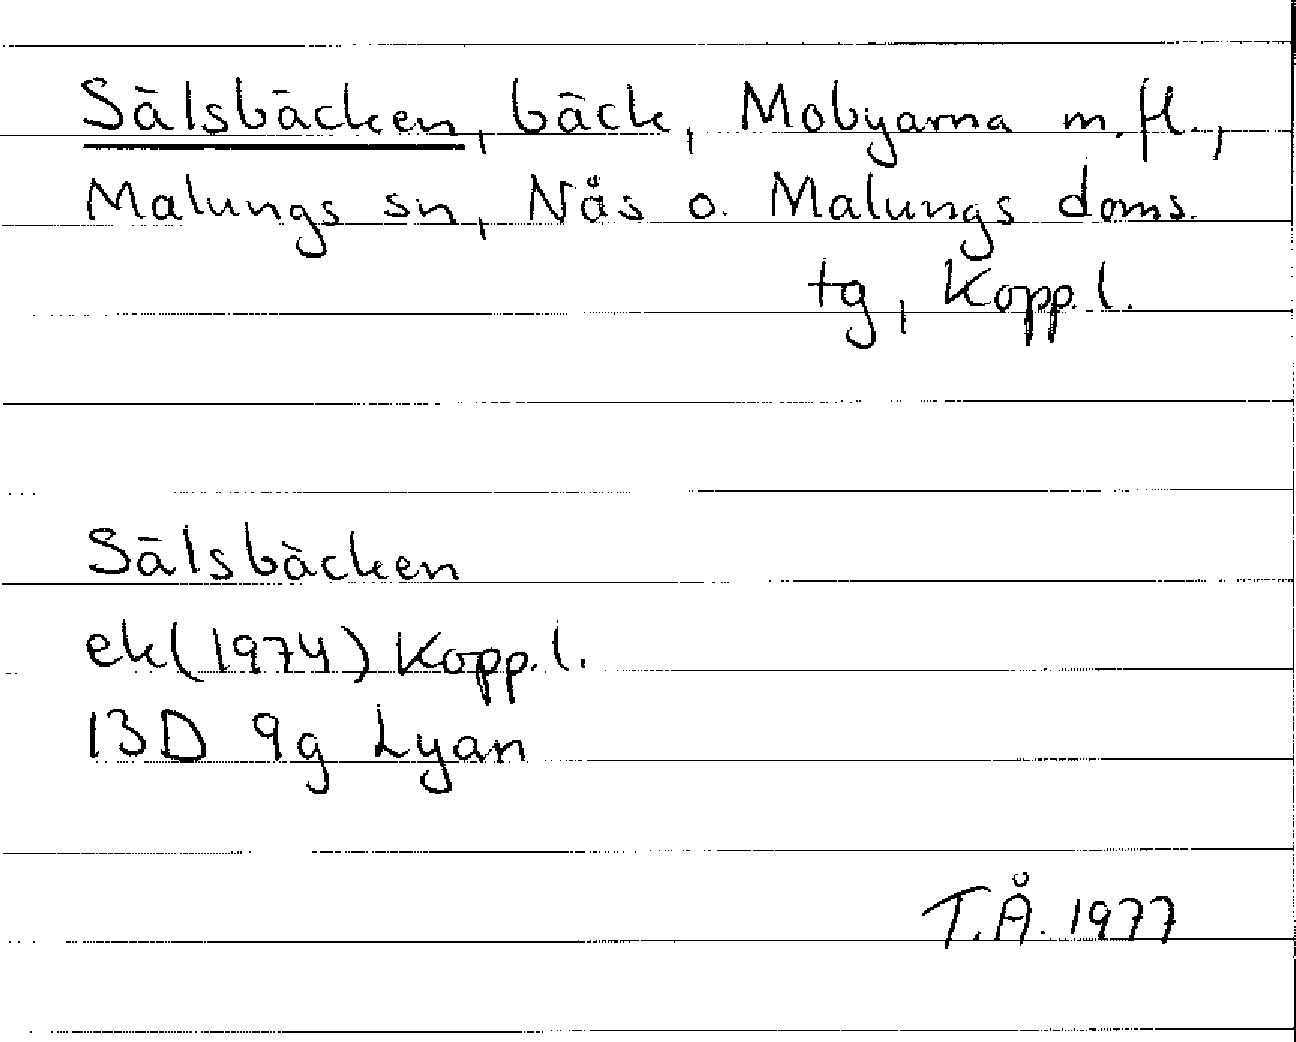 Sälsbäcken, bäck, Mobyarna m.fl.,
Malungs sn, Nås o. Malungs doms.
tg, Kopp.l.
Sälsbäcken
ek(1974) Kopp.l.
13D 9g Lyan
T.Å. 1977